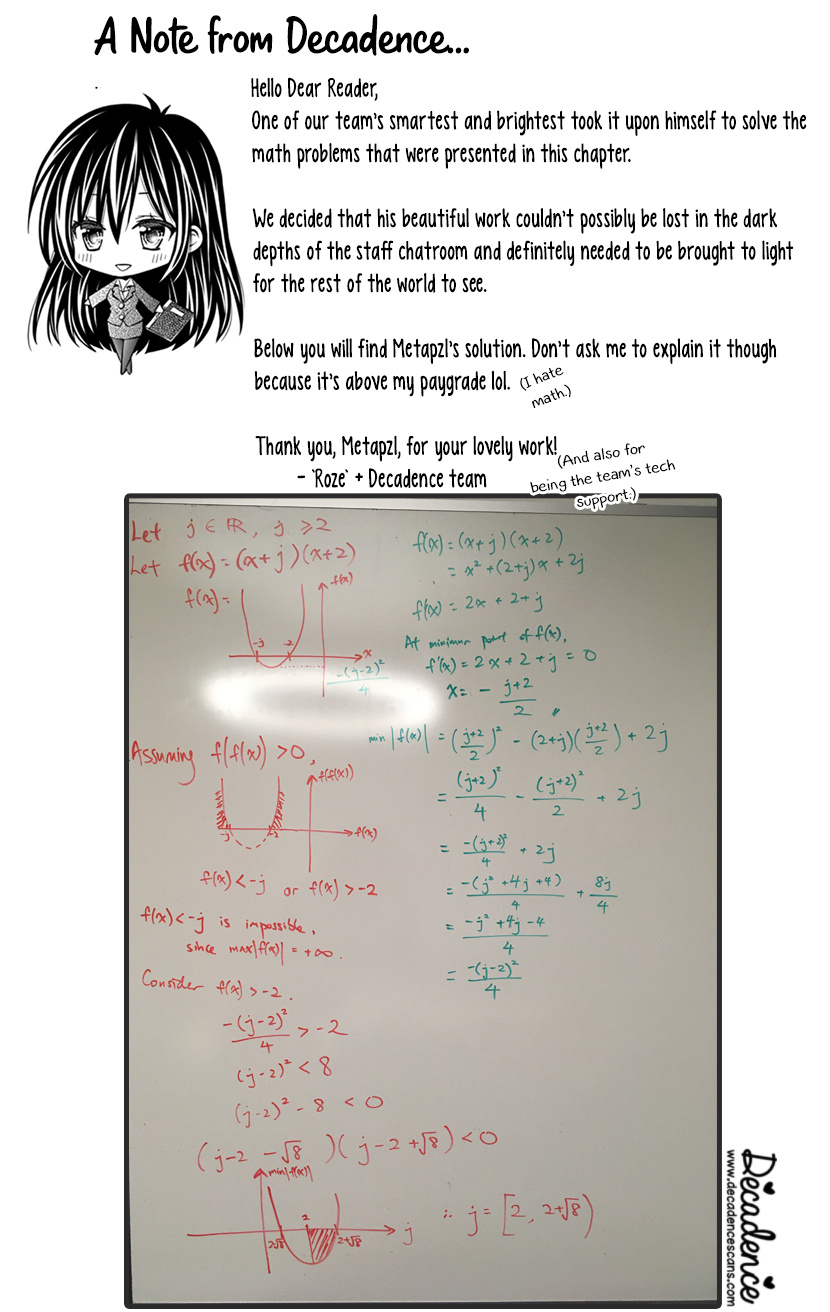 A Note from Decadence...
Hello Dear Reader,
One of our team's smartest and brightest took it upon himself to solve the
math problems that were presented in this chapter.
We decided that his beautiful work couldn't possibly be lost in the dark
depths of the staff chatroom and definitely needed to be brought to light
for the rest of the world to see.
Below you will find Metapzl's solution. Don't ask me to explain it though
because it's above my paygrade lol. (I hate
math.)
Thank you, Metapzl, for your lovely work!
- `Roze` + Decadence team
(And also for
being the team's tech
support.)
Let j ∈ ℝ, j ⩾ 2
Let f(x) = (x+j)(x+2)
f(x) =
f(x)
-j
-2
x
-(j-2)²/4
Assuming f(f(x)) > 0,
f(f(x))
-j
-2
f(x)
f(x) < -j or f(x) > -2
f(x) < -j is impossible,
since max|f(x)| = +∞.
Consider f(x) > -2.
-(j-2)²/4 > -2
(j-2)² < 8
(j-2)² - 8 < 0
(j-2 -√8 )(j-2 +√8) < 0
min|f(x)|
2
2-√8
2+√8
j
∴ j = [2, 2+√8)
f(x) = (x+j)(x+2)
= x² + (2+j)x + 2j
f'(x) = 2x + 2 + j
At minimum point of f(x),
f'(x) = 2x + 2 + j = 0
x = - (j+2)/2
min|f(x)| = ((j+2)/2)² - (2+j)((j+2)/2) + 2j
= (j+2)²/4 - (j+2)²/2 + 2j
= -(j+2)²/4 + 2j
= -(j² + 4j + 4)/4 + 8j/4
= (-j² + 4j - 4)/4
= -(j-2)²/4
Decadence
www.decadencescans.com